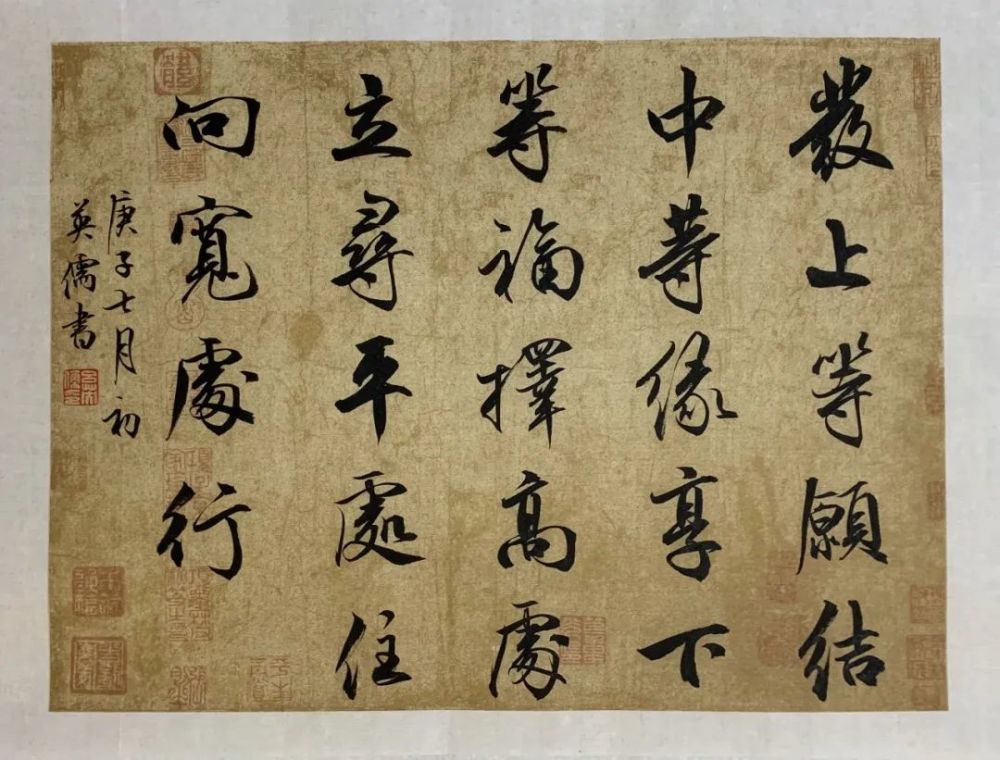 發上等願結
中等緣享下
等福擇高處
立尋平處住
向寬處行
庚子七月初
英儒書